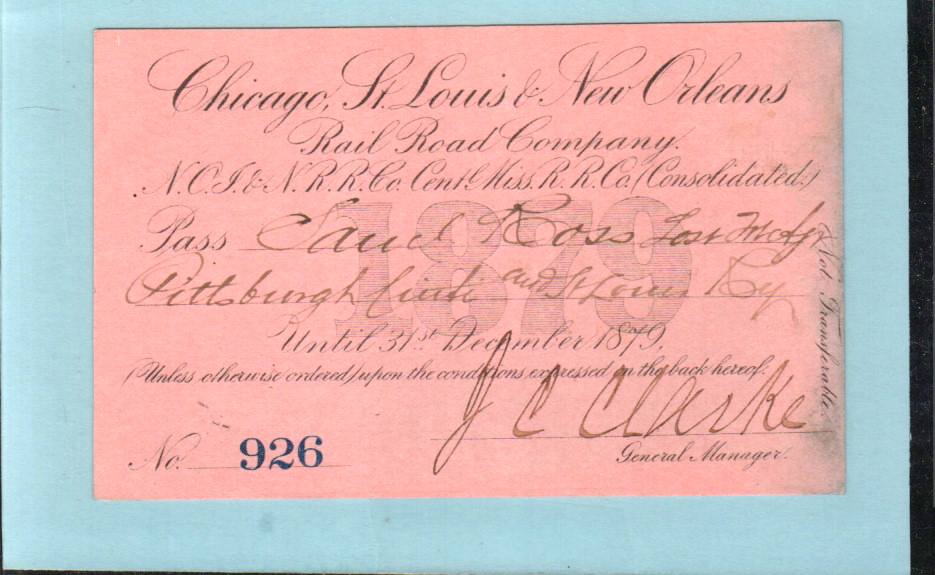 Chicago, St. Louis & New Orleans
Rail Road Company.
N.O.J.& N.R.R.Co. Cent. Miss. R.R.Co. (Consolidated.)
1879
Pass Saml Ross
Pittsburgh Cinti and St Louis Ry
Until 31st December 1879,
(Unless otherwise ordered) upon the conditions expressed on the back hereof.
J C Clarke
No. 926
General Manager.
Not Transferable.